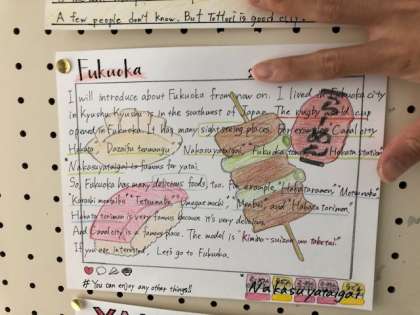 A few people don't know. But Tottori is good city.
Fukuoka
I will introduce about Fukuoka from now on. I lived in Fukuoka city
in Kyushu. Kyushu is in the southwest of Japan. The rugby world cup
opened in Fukuoka. It has many sightseeing places, for example Canal city
Hakata", "Dazaifu tenmangu", "Nakasuyataigai", "Fukuoka", "Hakata station"
Nakasuyataigai is famous for yatai.
So, Fukuoka has many delicious foods, too. For example "Hakata ramen", "Motsunabe"
"Karashi mentaiko", "Tetsunabe", "Umegae mochi", "Mentai", and "Hakata torimon."
Hakata torimon is very famous because it's very delicious.
And Canal city is a famous place. The model is "
If you are interested, Let's go to Fukuoka.
らーめん
# You can enjoy any other things!!
Nakasuyataigai